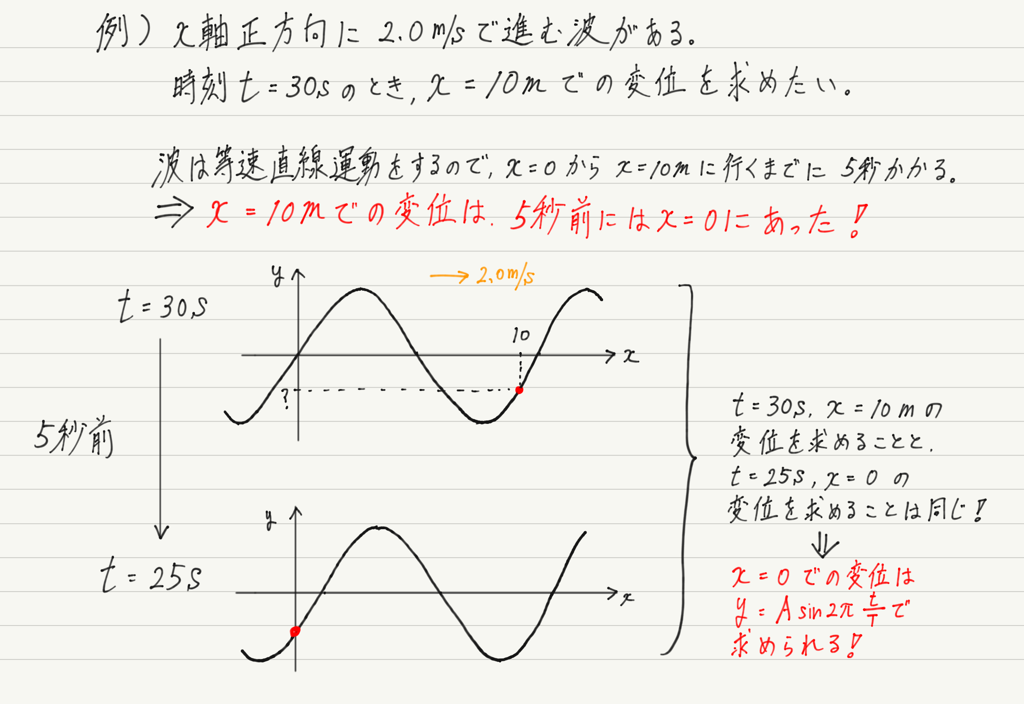 例) x軸正方向に 2.0m/sで進む波がある。
時刻t=30sのとき, x=10mでの変位を求めたい。
波は等速直線運動をするので, x=0から x=10mに行くまでに 5秒かかる。
⇒ x=10mでの変位は. 5秒前にはx=0にあった!
t=30s
5秒前
t=25s
y
→ 2.0m/s
10
x
?
y
x
t=30s. x=10mの
変位を求めることと.
t=25s, x=0 の
変位を求めることは同じ!
⇓
x=0 での変位は
y=A sin2π t/T で
求められる!